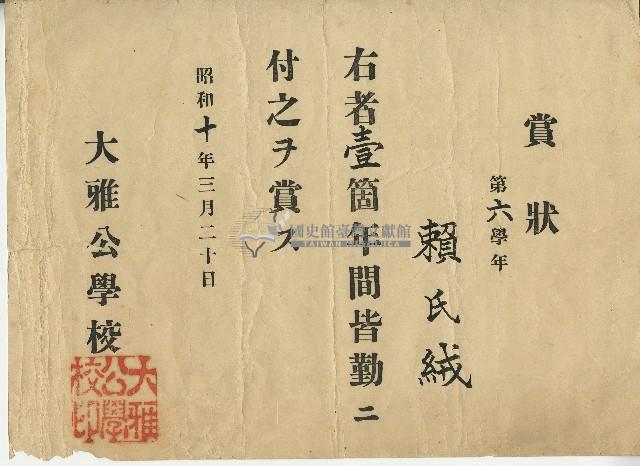 賞狀
第六學年
賴氏絨
右者壹箇年間皆勤ニ
付之ヲ賞ス
昭和十年三月二十日
大雅公學校
大雅公學校印
國史館臺灣文獻館
TAIWAN HISTORICA